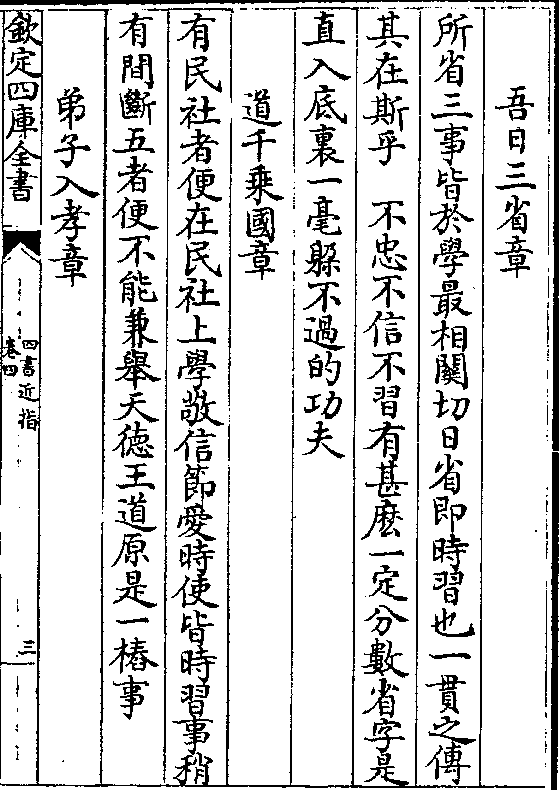 吾日三省章
所省三事皆於學最相關切日省即時習也一貫之傳
其在斯乎　不忠不信不習有甚麽一定分數省字是
直入底裏一毫躱不過的功夫
道千乘國章
有民社者便在民社上學敬信節愛時使皆時習事稍
有間斷五者便不能兼舉天德王道原是一樁事
弟子入孝章
欽定四庫全書
四書近指
卷四
三